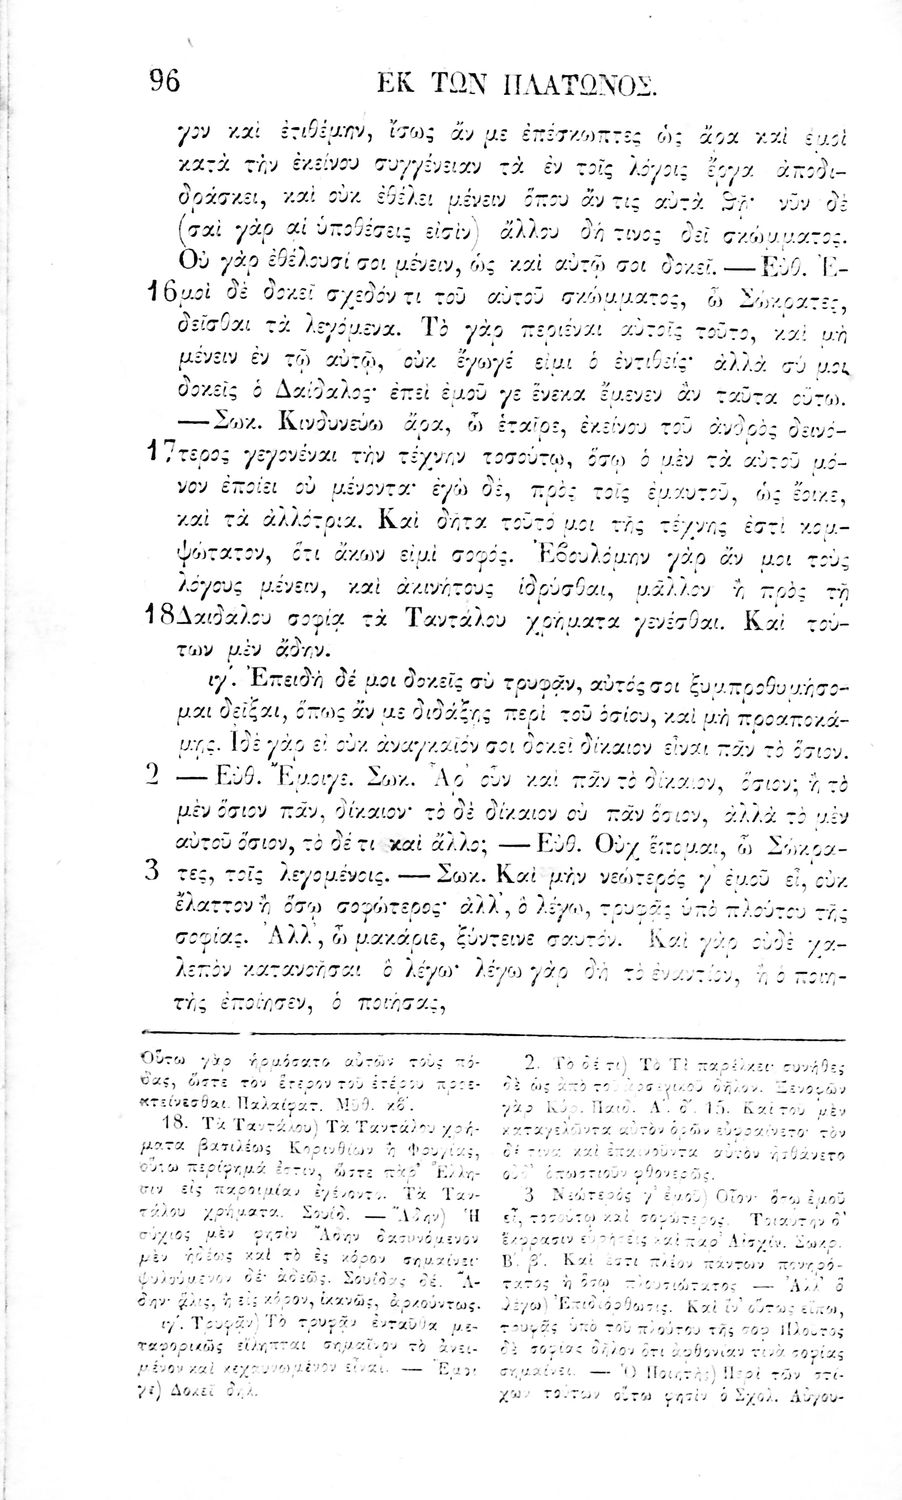 96 ΕΚ ΤΩΝ ΠΛΑΤΩΝΟΣ.
γον καὶ ἐτιθέμην, ἴσως ἄν με ἐπέσκωπτες ὡς ἄρα καὶ ἐμοὶ
κατὰ τὴν ἐκείνου συγγένειαν τὰ ἐν τοῖς λόγοις ἔργα ἀποδι-
δράσκει, καὶ οὐκ ἐθέλει μένειν ὅπου ἄν τις αὐτὰ θῇ· νῦν δὲ
(σαὶ γὰρ αἱ ὑποθέσεις εἰσὶν) ἄλλου δή τινος δεῖ σκώμματος.
Οὐ γὰρ ἐθέλουσί σοι μένειν, ὡς καὶ αὐτῷ σοι δοκεῖ. — Εὐθ. Ἐ-
16 μοὶ δὲ δοκεῖ σχεδόν τι τοῦ αὐτοῦ σκώμματος, ὦ Σώκρατες,
δεῖσθαι τὰ λεγόμενα. Τὸ γὰρ περιέναι αὐτοῖς τοῦτο, καὶ μὴ
μένειν ἐν τῷ αὐτῷ, οὐκ ἔγωγέ εἰμι ὁ ἐντιθείς· ἀλλὰ σύ μοι
δοκεῖς ὁ Δαίδαλος· ἐπεὶ ἐμοῦ γε ἕνεκα ἔμενεν ἂν ταῦτα οὕτω.
— Σωκ. Κινδυνεύω ἄρα, ὦ ἑταῖρε, ἐκείνου τοῦ ἀνδρὸς δεινό-
17 τερος γεγονέναι τὴν τέχνην τοσούτῳ, ὅσῳ ὁ μὲν τὰ αὑτοῦ μό-
νον ἐποίει οὐ μένοντα· ἐγὼ δὲ, πρὸς τοῖς ἐμαυτοῦ, ὡς ἔοικε,
καὶ τὰ ἀλλότρια. Καὶ δῆτα τοῦτό μοι τῆς τέχνης ἐστὶ κομ-
ψώτατον, ὅτι ἄκων εἰμὶ σοφός. Ἐβουλόμην γὰρ ἄν μοι τοὺς
λόγους μένειν, καὶ ἀκινήτους ἱδρύσθαι, μᾶλλον ἢ πρὸς τῇ
18 Δαιδάλου σοφίᾳ τὰ Ταντάλου χρήματα γενέσθαι. Καὶ τού-
των μὲν ἄδην.
ιγ΄. Ἐπειδὴ δέ μοι δοκεῖς σὺ τρυφᾶν, αὐτός σοι ξυμπροθυμήσο-
μαι δεῖξαι, ὅπως ἄν με διδάξῃς περὶ τοῦ ὁσίου, καὶ μὴ προαποκά-
μῃς. Ἰδὲ γὰρ εἰ οὐκ ἀναγκαῖόν σοι δοκεῖ δίκαιον εἶναι πᾶν τὸ ὅσιον.
2 — Εὐθ. Ἔμοιγε. Σωκ. Ἆρ' οὖν καὶ πᾶν τὸ δίκαιον, ὅσιον; ἢ τὸ
μὲν ὅσιον πᾶν, δίκαιον· τὸ δὲ δίκαιον οὐ πᾶν ὅσιον, ἀλλὰ τὸ μὲν
αὐτοῦ ὅσιον, τὸ δέ τι καὶ ἄλλο; — Εὐθ. Οὐχ ἕπομαι, ὦ Σώκρα-
3 τες, τοῖς λεγομένοις. — Σωκ. Καὶ μὴν νεώτερός γ' ἐμοῦ εἶ, οὐκ
ἔλαττον ἢ ὅσῳ σοφώτερος· ἀλλ', ὃ λέγω, τρυφᾷς ὑπὸ πλούτου τῆς
σοφίας. Ἀλλ', ὦ μακάριε, ξύντεινε σαυτόν. Καὶ γὰρ οὐδὲ χα-
λεπὸν κατανοῆσαι ὃ λέγω· λέγω γὰρ δὴ τὸ ἐναντίον, ἢ ὁ ποιη-
τὴς ἐποίησεν, ὁ ποιήσας,
Οὕτω γὰρ ἡρμόσατο αὐτῶν τοὺς πό-
δας, ὥστε τὸν ἕτερον τοῦ ἑτέρου προε-
κτείνεσθαι. Παλαίφατ. Μῦθ. κβ΄.
18. Τὰ Ταντάλου) Τὰ Ταντάλου χρή-
ματα βασιλέως Κορινθίων ἢ Φρυγίας,
οὕτω περίφημά ἐστιν, ὥστε παρ' Ἕλλη-
σιν εἰς παροιμίαν ἐγένοντο. Τὰ Ταν-
τάλου χρήματα. Σουΐδ. — Ἄδην) Ἡ
σύχιος μὲν φησὶν Ἄδην δασυνόμενον
μὲν ἡδέως καὶ τὸ ἐς κόρον σημαίνει·
ψιλούμενον δὲ ἀδεῶς. Σουΐδας δέ. Ἄ-
δην· ἅλις, ἢ εἰς κόρον, ἱκανῶς, ἀρκούντως.
ιγ΄. Τρυφᾶν) Τὸ τρυφᾶν ἐνταῦθα με-
ταφορικῶς εἴληπται σημαῖνον τὸ ἀνει-
μένον καὶ κεχαυνωμένον εἶναι. — Ἔμοι
γε) Δοκεῖ δηλ.
2. Τὸ δέ τι) Τὸ Τὶ παρέλκει· συνήθες
δὲ ὡς ἀπὸ τοῦ δήλον. Ξενοφῶν
γὰρ Κύρ. Παιδ. Α΄. δ΄. 15. Καὶ του μὲν
καταγελῶντα αὐτὸν ὁρῶν εὐφραίνετο· τὸν
δέ τινα καὶ ἐπαινοῦντα αὐτὸν ᾐσθάνετο
οὐδ' ὁπωστιοῦν φθονερῶς.
3 Νεώτερός γ' ἐμοῦ) Οἷον· ὅσῳ ἐμοῦ
εἶ, τοσούτῳ καὶ σοφώτερος. Τοιαύτην δ'
ἔκφρασιν εὑρήσεις καὶ παρ' Αἰσχίν. Σωκρ.
Β΄. β΄. Καί ἐστι πλέον πάντων πονηρό-
τατος ἢ ὅσῳ πλουσιώτατος — Ἀλλ' ὃ
λέγω) Ἐπιδιόρθωσις. Καὶ ἵν' οὕτως εἴπω,
τρυφᾷς ὑπὸ τοῦ πλούτου τῆς σοφ Πλοῦτος
δὲ σοφίας δῆλον ὅτι ἀφθονίαν τινὰ σοφίας
σημαίνει. — Ὁ Ποιητής) Περὶ τῶν στί-
χων τούτων οὕτω φησὶν ὁ Σχολ. Αὔγου-